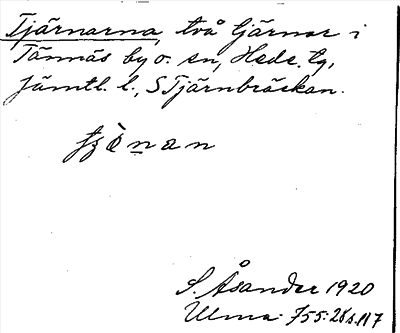 Tjärnarna, två tjärnar i
Tännäs by o. sn, Hede tg,
Jämtl. l., S Tjärnbräckan.
S. Åsander 1920
Ulma 755:28 s. 117